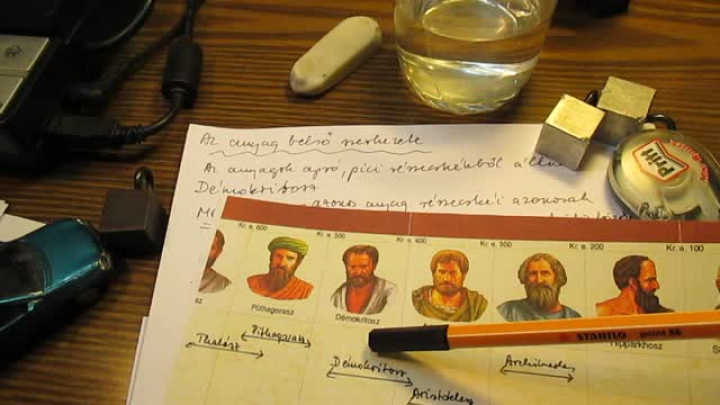 Az anyag belső szerkezete
Az anyagok apró, pici részecskékből
Démokritosz
azonos anyag részecskéi azonosak
Pritt
Kr. e. 600
Kr. e. 500
Kr. e. 400
Kr. e. 300
Kr. e. 200
Kr. e. 100
sz
Püthagorasz
Démokritosz
Hipparkhosz
STABILO point 88
Thalész
Püthagorasz
Démokritosz
Archimedes
Arisztotelész